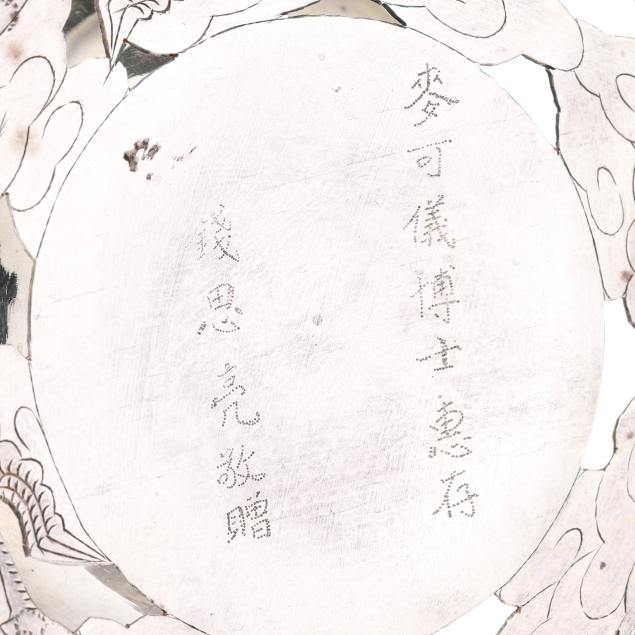 麥可儀博士惠存
錢思亮敬贈